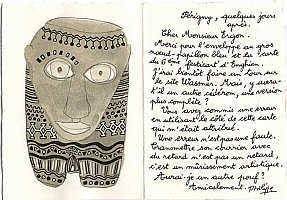 Périgny, quelques jours
après.
Cher Monsieur Ergon.
Merci pour l'enveloppe au gros
nœud-papillon bleu et la carte
du 6ème festicart d'Enghien.
J'irai bientôt faire un tour sur
le site Wasmer. Mais, y aura-
t-il un autre cédérom, une version
plus complète ?
Vous avez commis une erreur
en utilisant le côté de cette carte
qui m'était attribué.
Une erreur n'est pas une faute.
Transmettre son courrier avec
du retard n'est pas un retard,
c'est un mûrissement artistique.
Aurai-je un autre pouf ?
Amicalement. Philippe